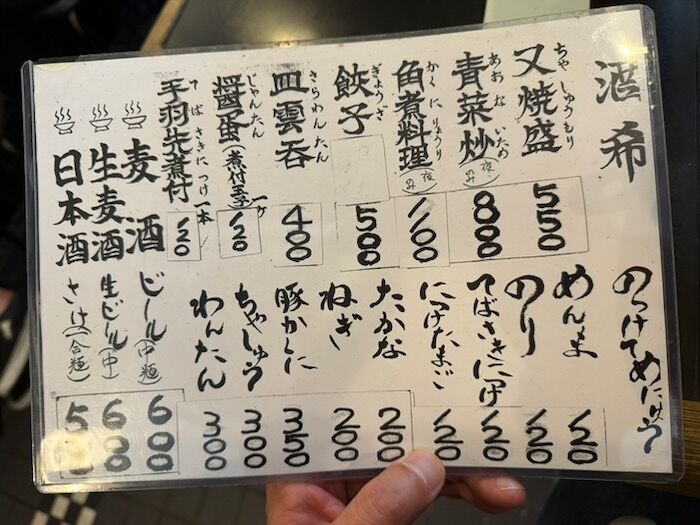 酒希
ちゃしゅうもり
又焼盛
550
あおないため
青菜炒(夜のみ)
800
かくにりょうり
角煮料理(夜のみ)
ぎょうざ
餃子
500
さらわんたん
皿雲呑
400
じゃんたん
醤蛋(煮付玉子)一ヶ
120
てばさきにつけ
手羽先煮付一本
120
麦酒
ビール(中瓶)
600
生麦酒
生ビール(中)
600
日本酒
さけ(一合瓶)
のっけてめにゅう
めんま
120
のり
120
てばさきにつけ
120
につけたまご
120
たかな
200
ねぎ
200
豚かくに
350
ちゃしゅう
300
わんたん
300